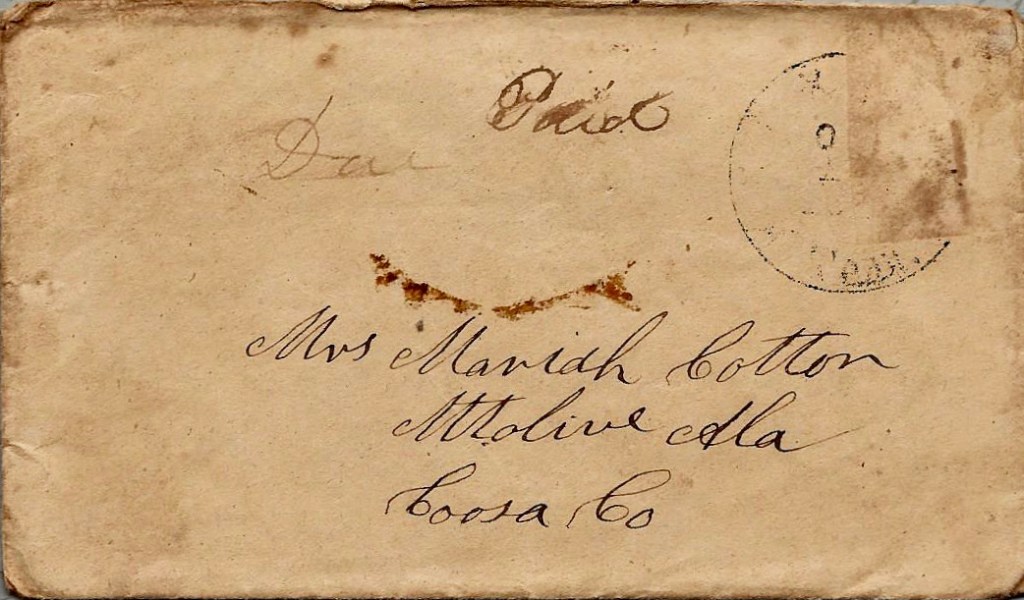 Paid
Due
Mrs Mariah Cotton
Mtolive Ala
Coosa Co